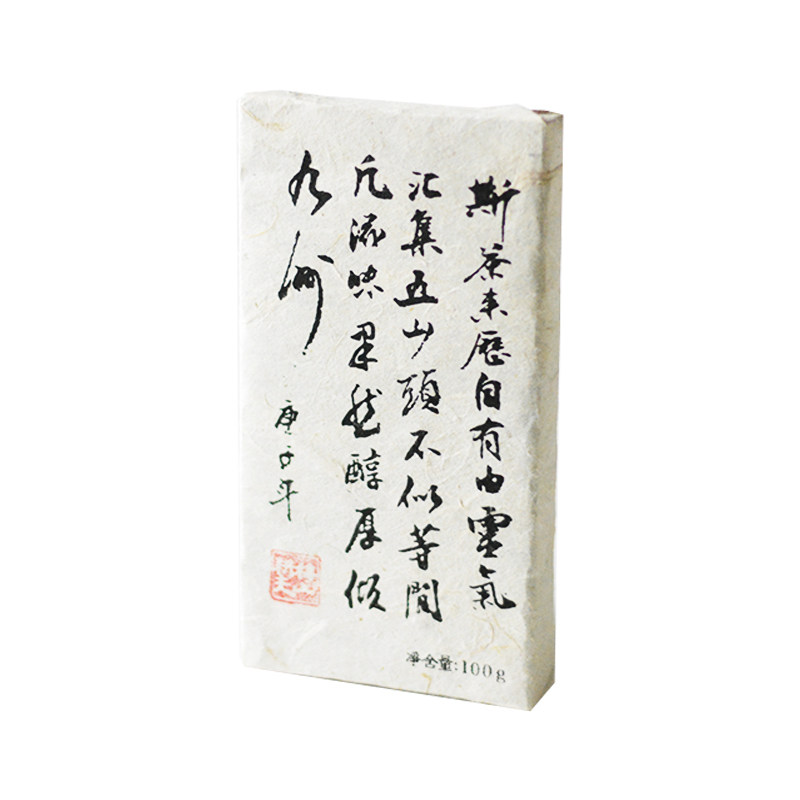 斯茶来歷自有由靈氣
汇集五山頭不似等間
凡流味果然醇厚倾
九州
庚子年
凈含量:100g